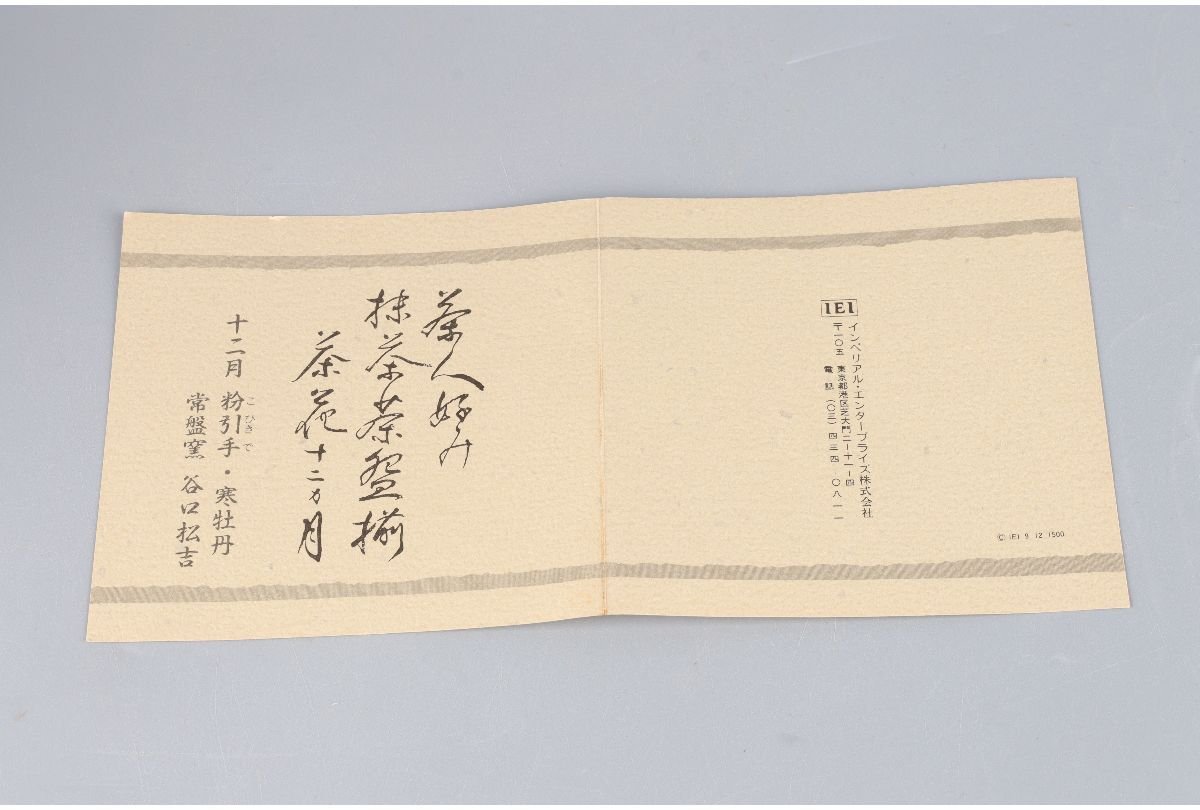 茶人好み
抹茶茶盌揃
茶花十二カ月
十二月 粉引手・寒牡丹
こひきで
常盤窯 谷口松吉
IEI
インペリアル・エンタープライズ株式会社
〒一〇五 東京都港区芝大門二ー十一ー四
電話(〇三)四三四 〇八一一
© IEI 9 12 1500